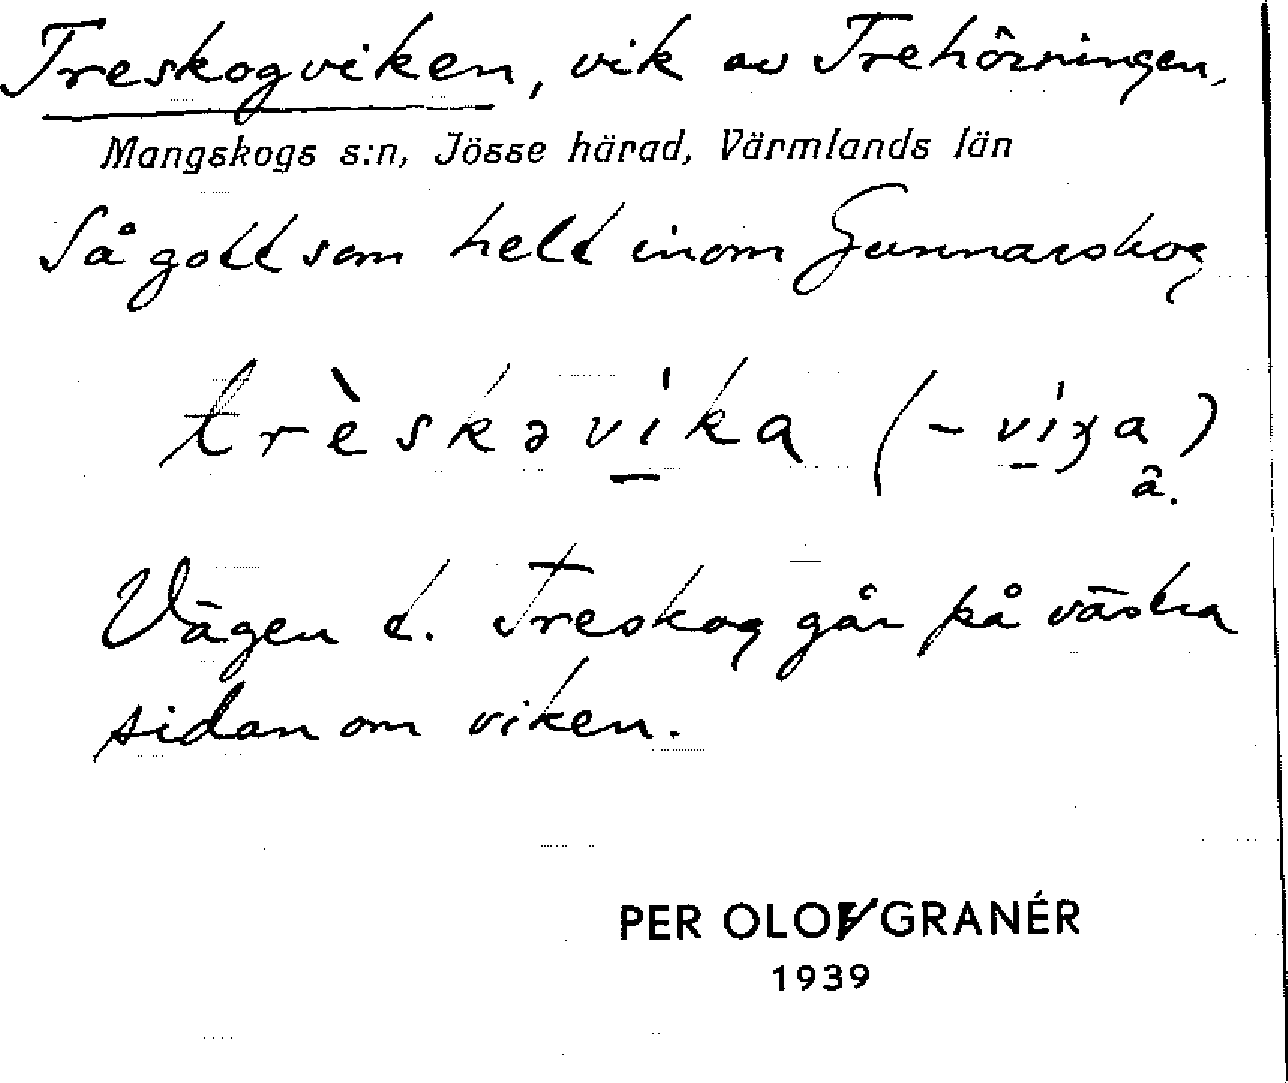 Treskogviken, vik av Trehörningen,
Mangskogs s:n, Jösse härad, Värmlands län
Så gott som helt inom Gunnarskog
trèskəvika (-viʒa)
ä.
Vägen t. Treskog går på västra
sidan om viken.
PER OLOF GRANÉR
1939